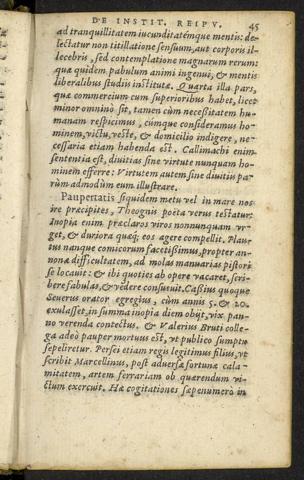 DE INSTIT. REIPV. 45
ad tranquillitatem iucunditatémque mentis: de-
lectatur non titillatione sensuum, aut corporis il-
lecebris, sed contemplatione magnarum rerum:
quæ quidem pabulum animi ingenui, & mentis
liberalibus studiis institutæ. Quarta illa pars,
quæ commercium cum superioribus habet, licet
minor omninò sit, tamen cùm necessitatem hu-
manam respicimus, cúmque consideramus ho-
minem, victu, veste, & domicilio indigere, ne-
cessaria etiam habenda est. Callimachi enim
sententia est, diuitias sine virtute nunquam ho-
minem efferre: Virtutem autem sine diuitiis pa-
rùm admodum eum illustrare.
Paupertatis siquidem metu vel in mare nos-
ire præcipites, Theognis poëta verus testatur:
Inopia enim præclaros viros nonnunquam vr-
get, & duriora quæq; eos agere compellit. Plau-
tus nanque comicorum facetissimus, propter an-
nonæ difficultatem, ad molas manuarias pistori
se locauit: & ibi quoties ab opere vacaret, scri-
bere fabulas, & vēdere consueuit. Caßius quoque
Seuerus orator egregius, cùm annis 5. & 20.
exulasset, in summa inopia diem obijt, vix pan-
no verenda contectus. & Valerius Bruti colle-
ga adeò pauper mortuus est, vt publico sumptu
sepeliretur. Persei etiam regis legitimus filius, vt
scribit Marcellinus, post aduersæ fortunæ cala-
mitatem, artem ferrariam ob quærendum vi-
ctum exercuit. Hæ cogitationes sæpenumero in